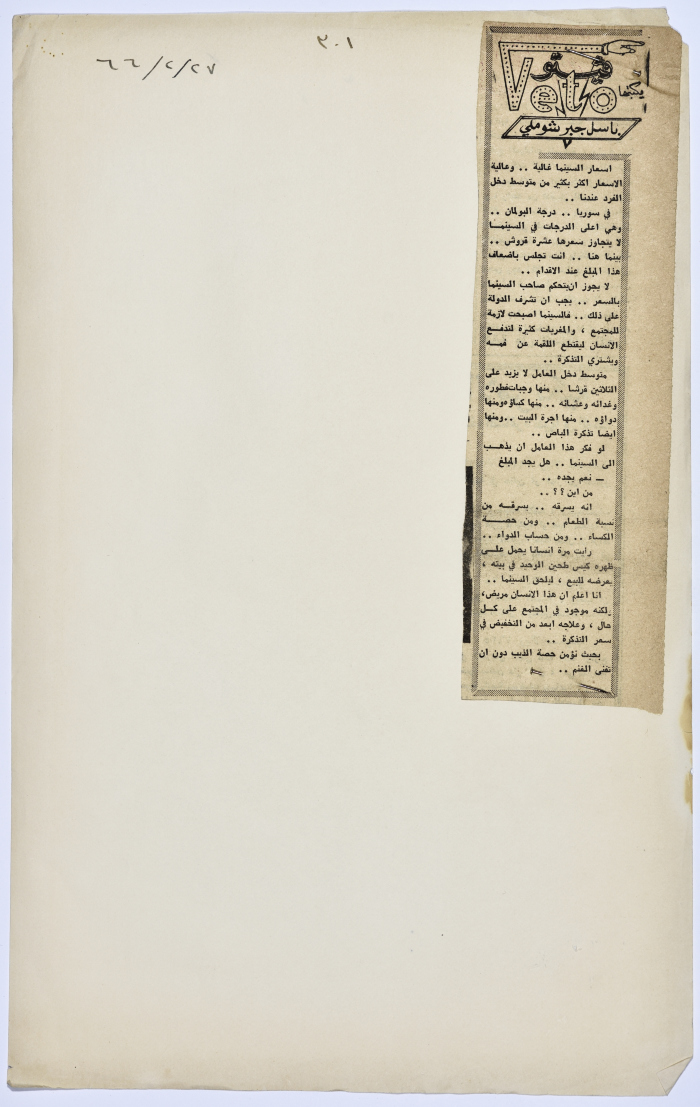 ٣٠١
٦٦/٢/٢٧
فيتو
Veto
يكتبها
باسل جبر شوملي
٧
اسعار السينما غالية .. وعالية
الاسعار اكثر بكثير من متوسط دخل
الفرد عندنا ..
في سوريا .. درجة البولمان ..
وهي اعلى الدرجات في السينمـا
لا يتجاوز سعرها عشرة قروش ..
بينما هنا .. انت تجلس باضعاف
هذا المبلغ عند الاقدام ..
لا يجوز ان يتحكم صاحب السينما
بالسعر .. يجب ان تشرف الدولة
على ذلك .. فالسينما اصبحت لازمة
للمجتمع ، والمغريات كثيرة لتدفـع
الانسان ليقتطع اللقمة عن فمـه
ويشتري التذكرة ..
متوسط دخل العامل لا يزيد على
الثلاثين قرشا .. منها وجبات فطوره
وغدائه وعشائه .. منها كساؤه ومنها
دواؤه .. منها اجرة البيت .. ومنها
ايضا تذكرة الباص ..
لو فكر هذا العامل ان يذهـب
الى السينما .. هل يجد المبلغ
— نعم يجده ..
من اين ؟؟ ..
انه يسرقه .. يسرقـه من
نسبة الطعام .. ومن حصـة
الكساء .. ومن حساب الدواء ..
رايت مرة انسانا يحمل علـى
ظهره كيس طحين الوحيد في بيته ،
يعرضه للبيع ، ليلحق السينما ..
انا اعلم ان هذا الانسان مريض،
ولكنه موجود في المجتمع على كـل
حال ، وعلاجه ابعد من التخفيض في
سعر التذكرة ..
بحيث نؤمن حصة الذيب دون ان
تفنى الغنم ..